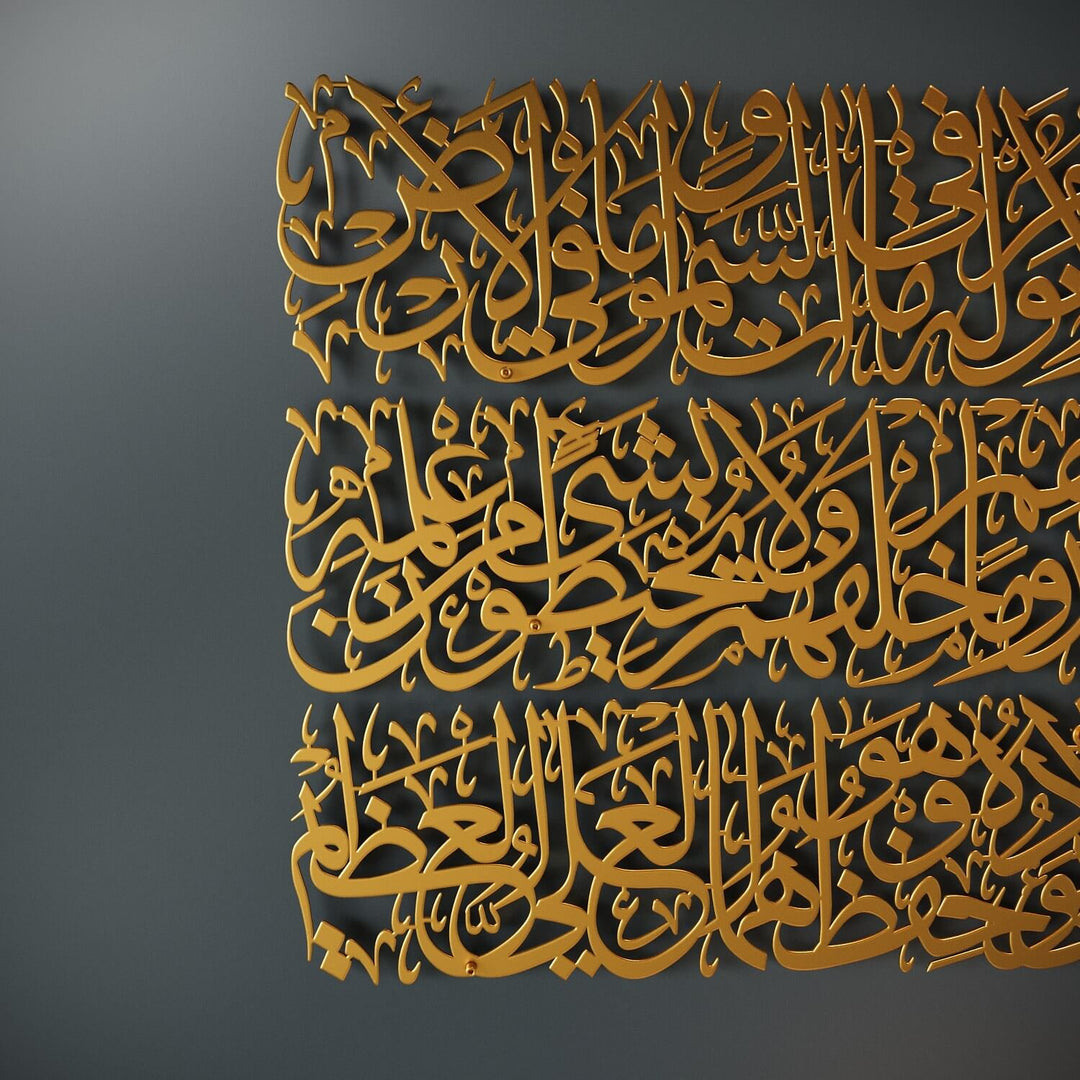 نَوْمٌ لَهُ مَا فِي السَّمٰوَاتِ وَمَا فِي الْاَرْضِ
وَمَا خَلْفَهُمْ وَلَا يُحِيطُونَ بِشَيْءٍ مِنْ عِلْمِهِ
حِفْظُهُمَا وَهُوَ الْعَلِيُّ الْعَظِيمُ